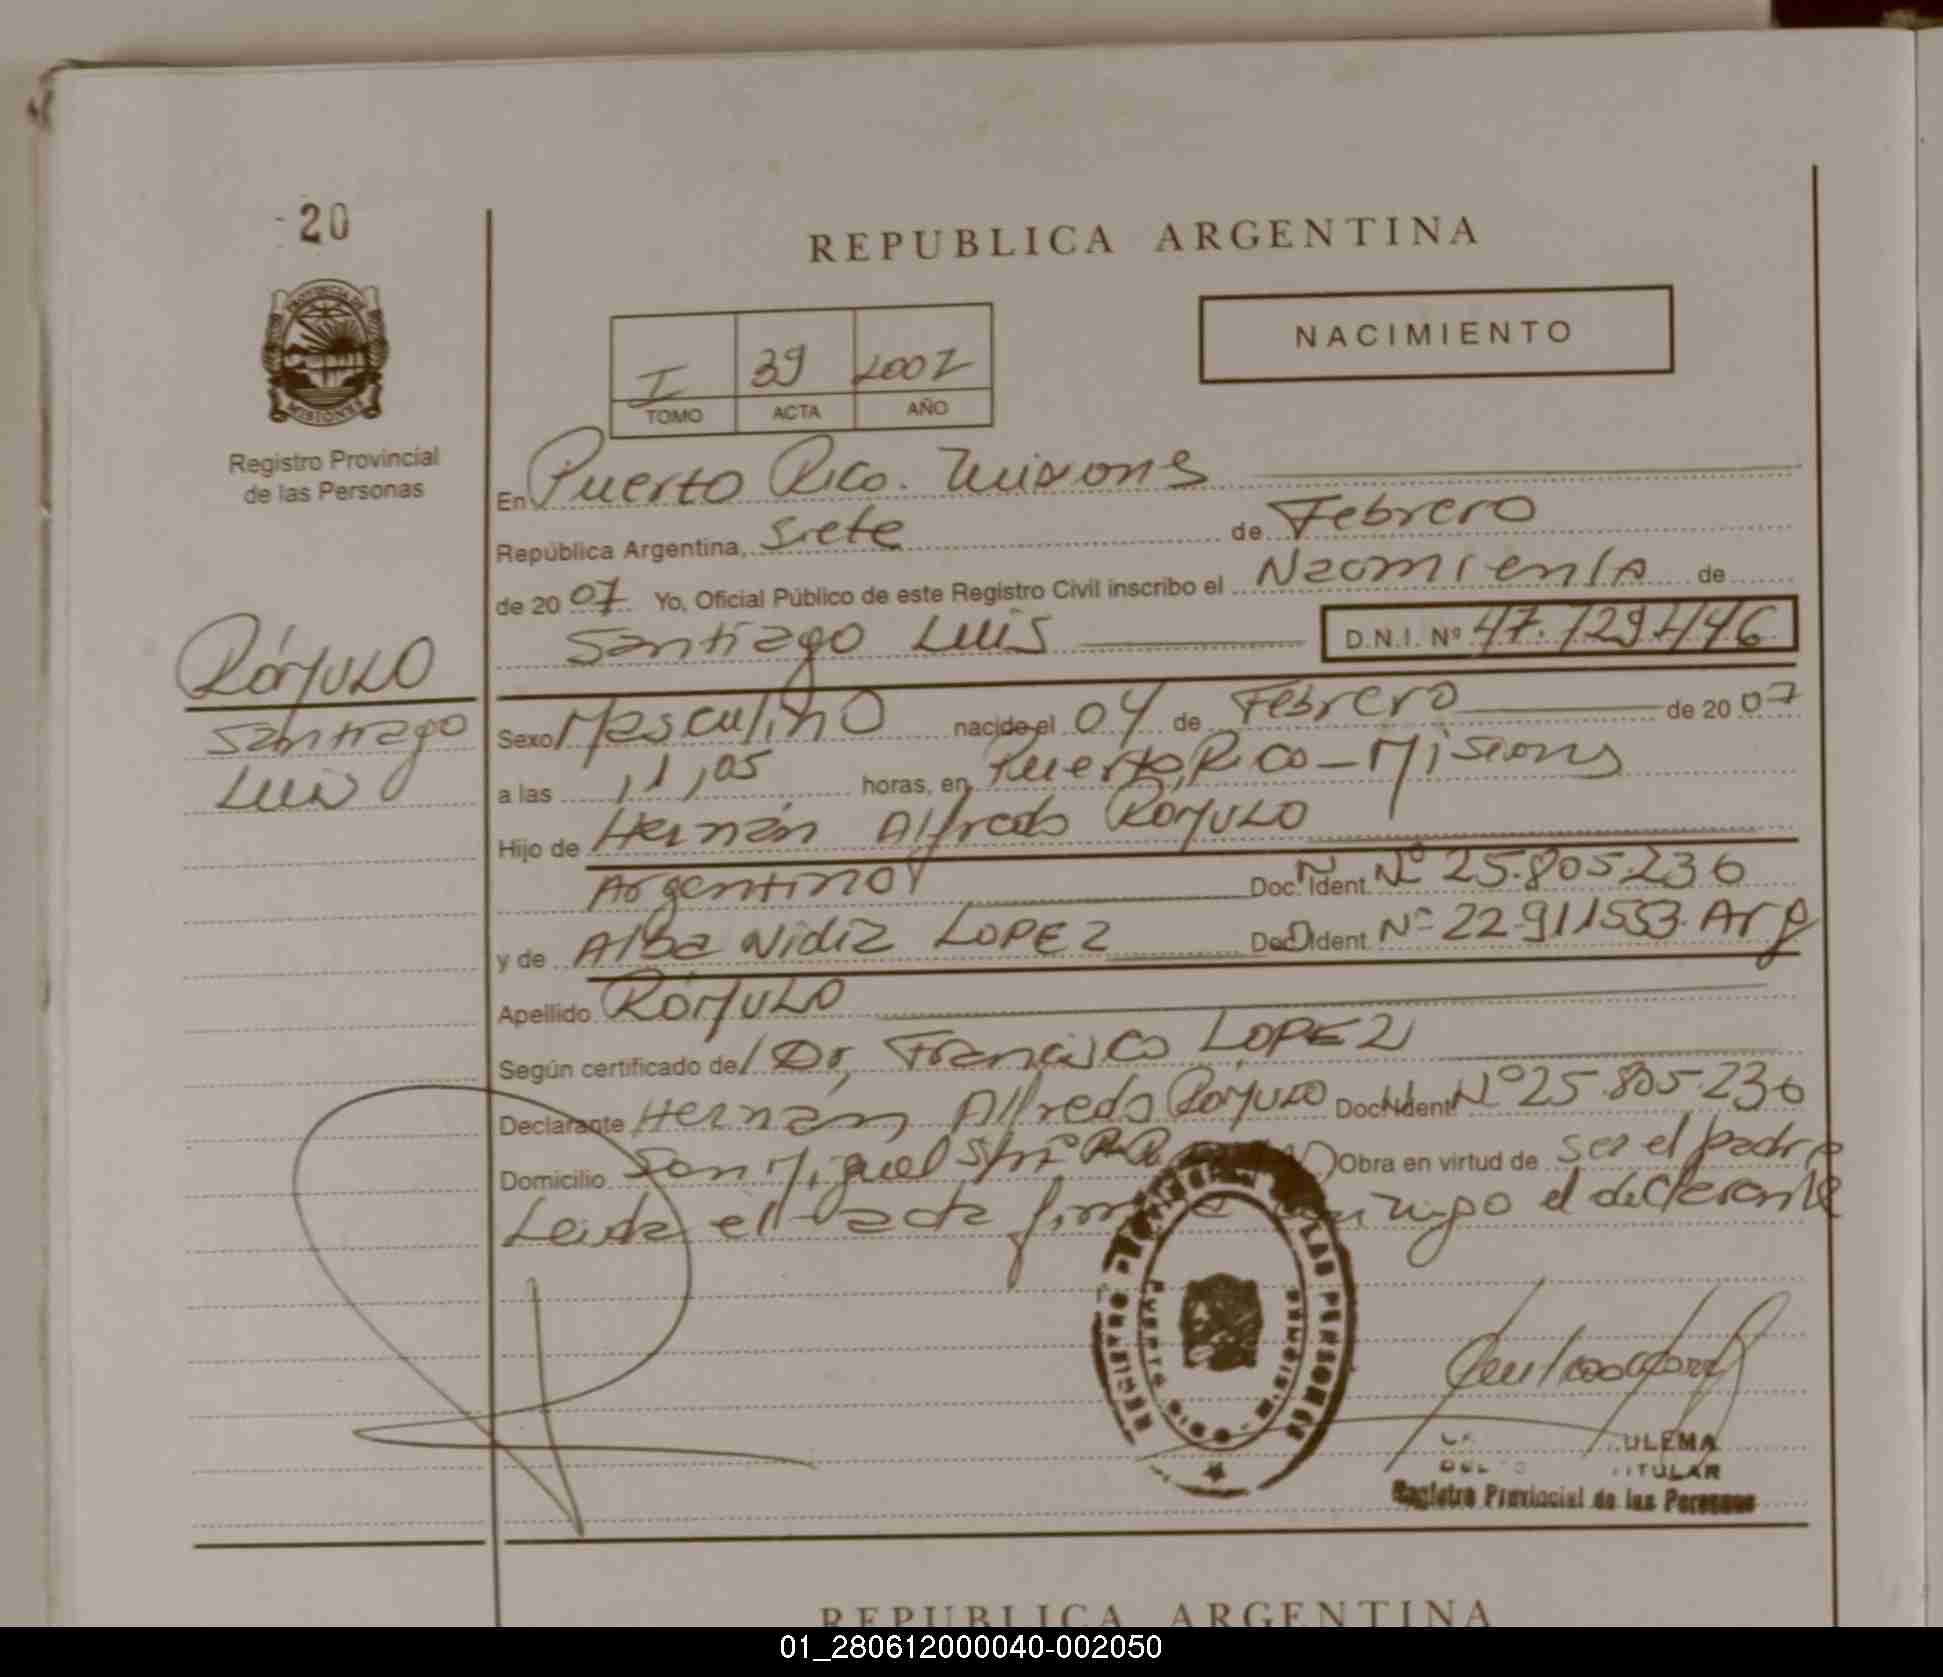 20
REPUBLICA ARGENTINA
PROVINCIA DE
MISIONES
Registro Provincial
de las Personas
I 39 2007
TOMO ACTA AÑO
NACIMIENTO
En Puerto Rico. Misiones
República Argentina, siete de Febrero
de 20 07 Yo, Oficial Público de este Registro Civil inscribo el Nacimiento de
Santiago Luis D.N.I. Nº 47.729.446
RÓMULO
Santiago
Luis
Sexo Masculino nacido el 04 de Febrero de 20 07
a las 11,05 horas, en Puerto Rico - Misiones
Hijo de Hernán Alfredo RÓMULO
Argentino Doc. Ident. Nº 25.805.236
y de Alba Nidia LOPEZ Doc. Ident. Nº 22.911553. Arg
Apellido RÓMULO
Según certificado de Dr, Francisco LOPEZ
Declarante Hernán Alfredo RÓMULO Doc. Ident. Nº 25.805.236
Domicilio San Miguel S/nº Obra en virtud de ser el padre
Leida el acta firma conmigo el declarante
REGISTRO PROVINCIAL DE LAS PERSONAS
PUERTO RICO MISIONES
ULEMA
TITULAR
Registro Provincial de las Personas
REPUBLICA ARGENTINA
01_280612000040-002050